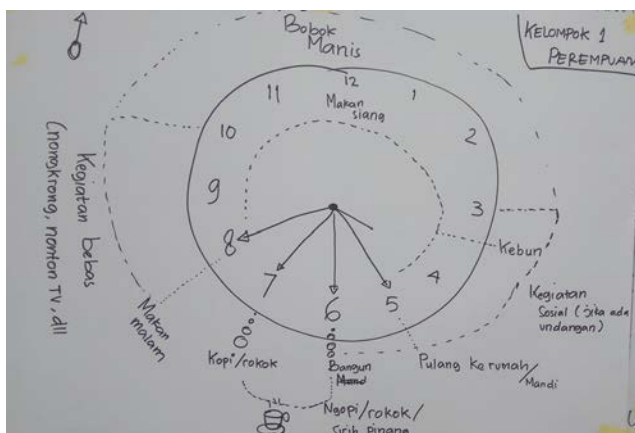 Bobok
Manis
KELOMPOK 1
PEREMPUAN
12
1
2
3
4
5
6
7
8
9
10
11
Makan
siang
Kebun
Kegiatan
Sosial (jika ada
undangan)
Pulang ke rumah/
Mandi
Bangun
Ngopi/rokok/
Sirih Pinang
Kopi/rokok
Makan
malam
Kegiatan bebas
(nongkrong, nonton TV, dll